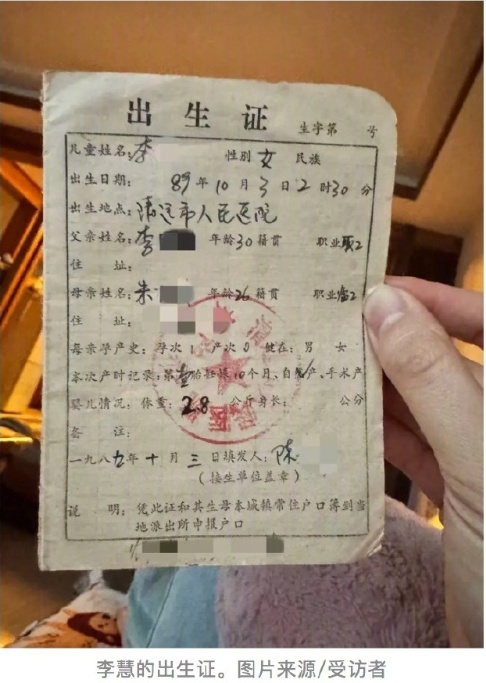 出生证 生字第 号
儿童姓名:李 性别女 民族
出生日期: 89年10月3日2时30分
出生地点:清远市人民医院
父亲姓名:李 年龄30籍贯 职业
住 址:
母亲姓名:朱 年龄26籍贯 职业
住 址:
母亲孕产史:孕次1 产次0 健在:男 女
本次产时记录:第壹胎妊娠10个月、自然产、手术产
婴儿情况:体重:2.8 公斤身长: 公分
备 注:
一九八九年十月三日填发人:陈
(接生单位盖章)
说 明:凭此证和其生母本城镇常住户口簿到当
地派出所申报户口
李慧的出生证。图片来源/受访者